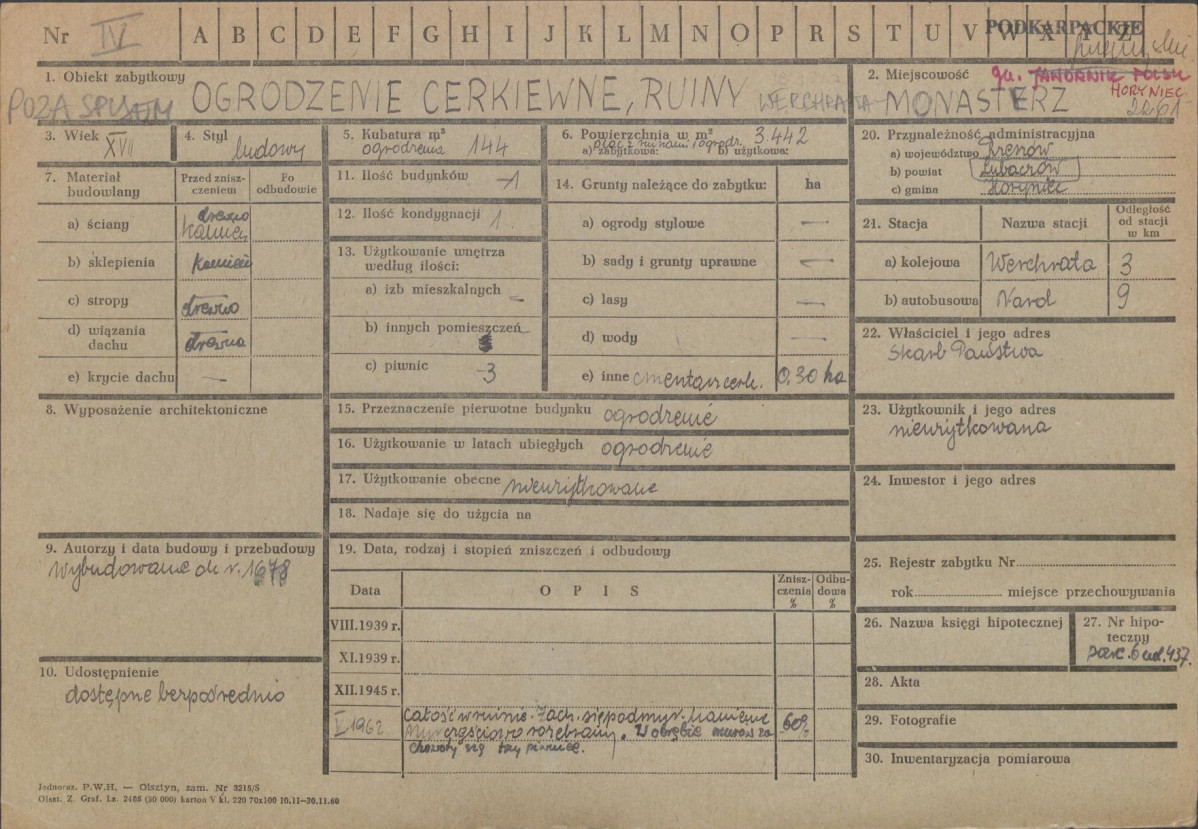 Nr IV A B C D E F G H I J K L M N O P R S T U V W X Y Z
PODKARPACKIE
1. Obiekt zabytkowy
POZA SPISEM OGRODZENIE CERKIEWNE, RUINY
2. Miejscowość gm. JAWORNIK POLSKI
HORYNIEC
WERCHRATA - MONASTERZ
3. Wiek XVII
4. Styl ludowy
5. Kubatura m³
ogrodzenia 144
6. Powierzchnia w m² 3.442
plac z ruinami i ogrodz.
a) zabytkowa: b) użytkowa:
7. Materiał budowlany
Przed zniszczeniem
Po odbudowie
a) ściany drewno
kamień
b) sklepienia kamień
c) stropy drewno
d) wiązania dachu drewno
e) krycie dachu —
8. Wyposażenie architektoniczne
9. Autorzy i data budowy i przebudowy
Wybudowanie ok r. 1678
10. Udostępnienie
dostępne bezpośrednio
11. Ilość budynków -1
12. Ilość kondygnacji 1
13. Użytkowanie wnętrza według ilości:
a) izb mieszkalnych -
b) innych pomieszczeń
c) piwnic -3
14. Grunty należące do zabytku: ha
a) ogrody stylowe —
b) sady i grunty uprawne —
c) lasy —
d) wody —
e) inne cmentarz cerk. 0.30 ha
15. Przeznaczenie pierwotne budynku ogrodzenie
16. Użytkowanie w latach ubiegłych ogrodzenie
17. Użytkowanie obecne nieużytkowane
18. Nadaje się do użycia na
19. Data, rodzaj i stopień zniszczeń i odbudowy
Data O P I S Zniszczenia % Odbudowa %
VIII.1939 r.
XI.1939 r.
XII.1945 r.
V 1962 Całość w ruinie. Zach. się podmur. kamienne 60%
Mur częściowo rozebrany. W obrębie murów za
chowały się trzy piwnice.
20. Przynależność administracyjna
a) województwo Rzeszów
b) powiat Lubaczów
c) gmina Horyniec
21. Stacja Nazwa stacji Odległość od stacji w km
a) kolejowa Werchrata 3
b) autobusowa Narol 9
22. Właściciel i jego adres
Skarb Państwa
23. Użytkownik i jego adres
nieużytkowana
24. Inwestor i jego adres
25. Rejestr zabytku Nr
rok miejsce przechowywania
26. Nazwa księgi hipotecznej
27. Nr hipoteczny
parc. 6 ud. 437.
28. Akta
29. Fotografie
30. Inwentaryzacja pomiarowa
Jednoraz. P.W.H. — Olsztyn, zam. Nr 3215/S
Olszt. Z. Graf. Lz. 2485 (30 000) karton V kl. 220 70x100 10.11—30.11.60